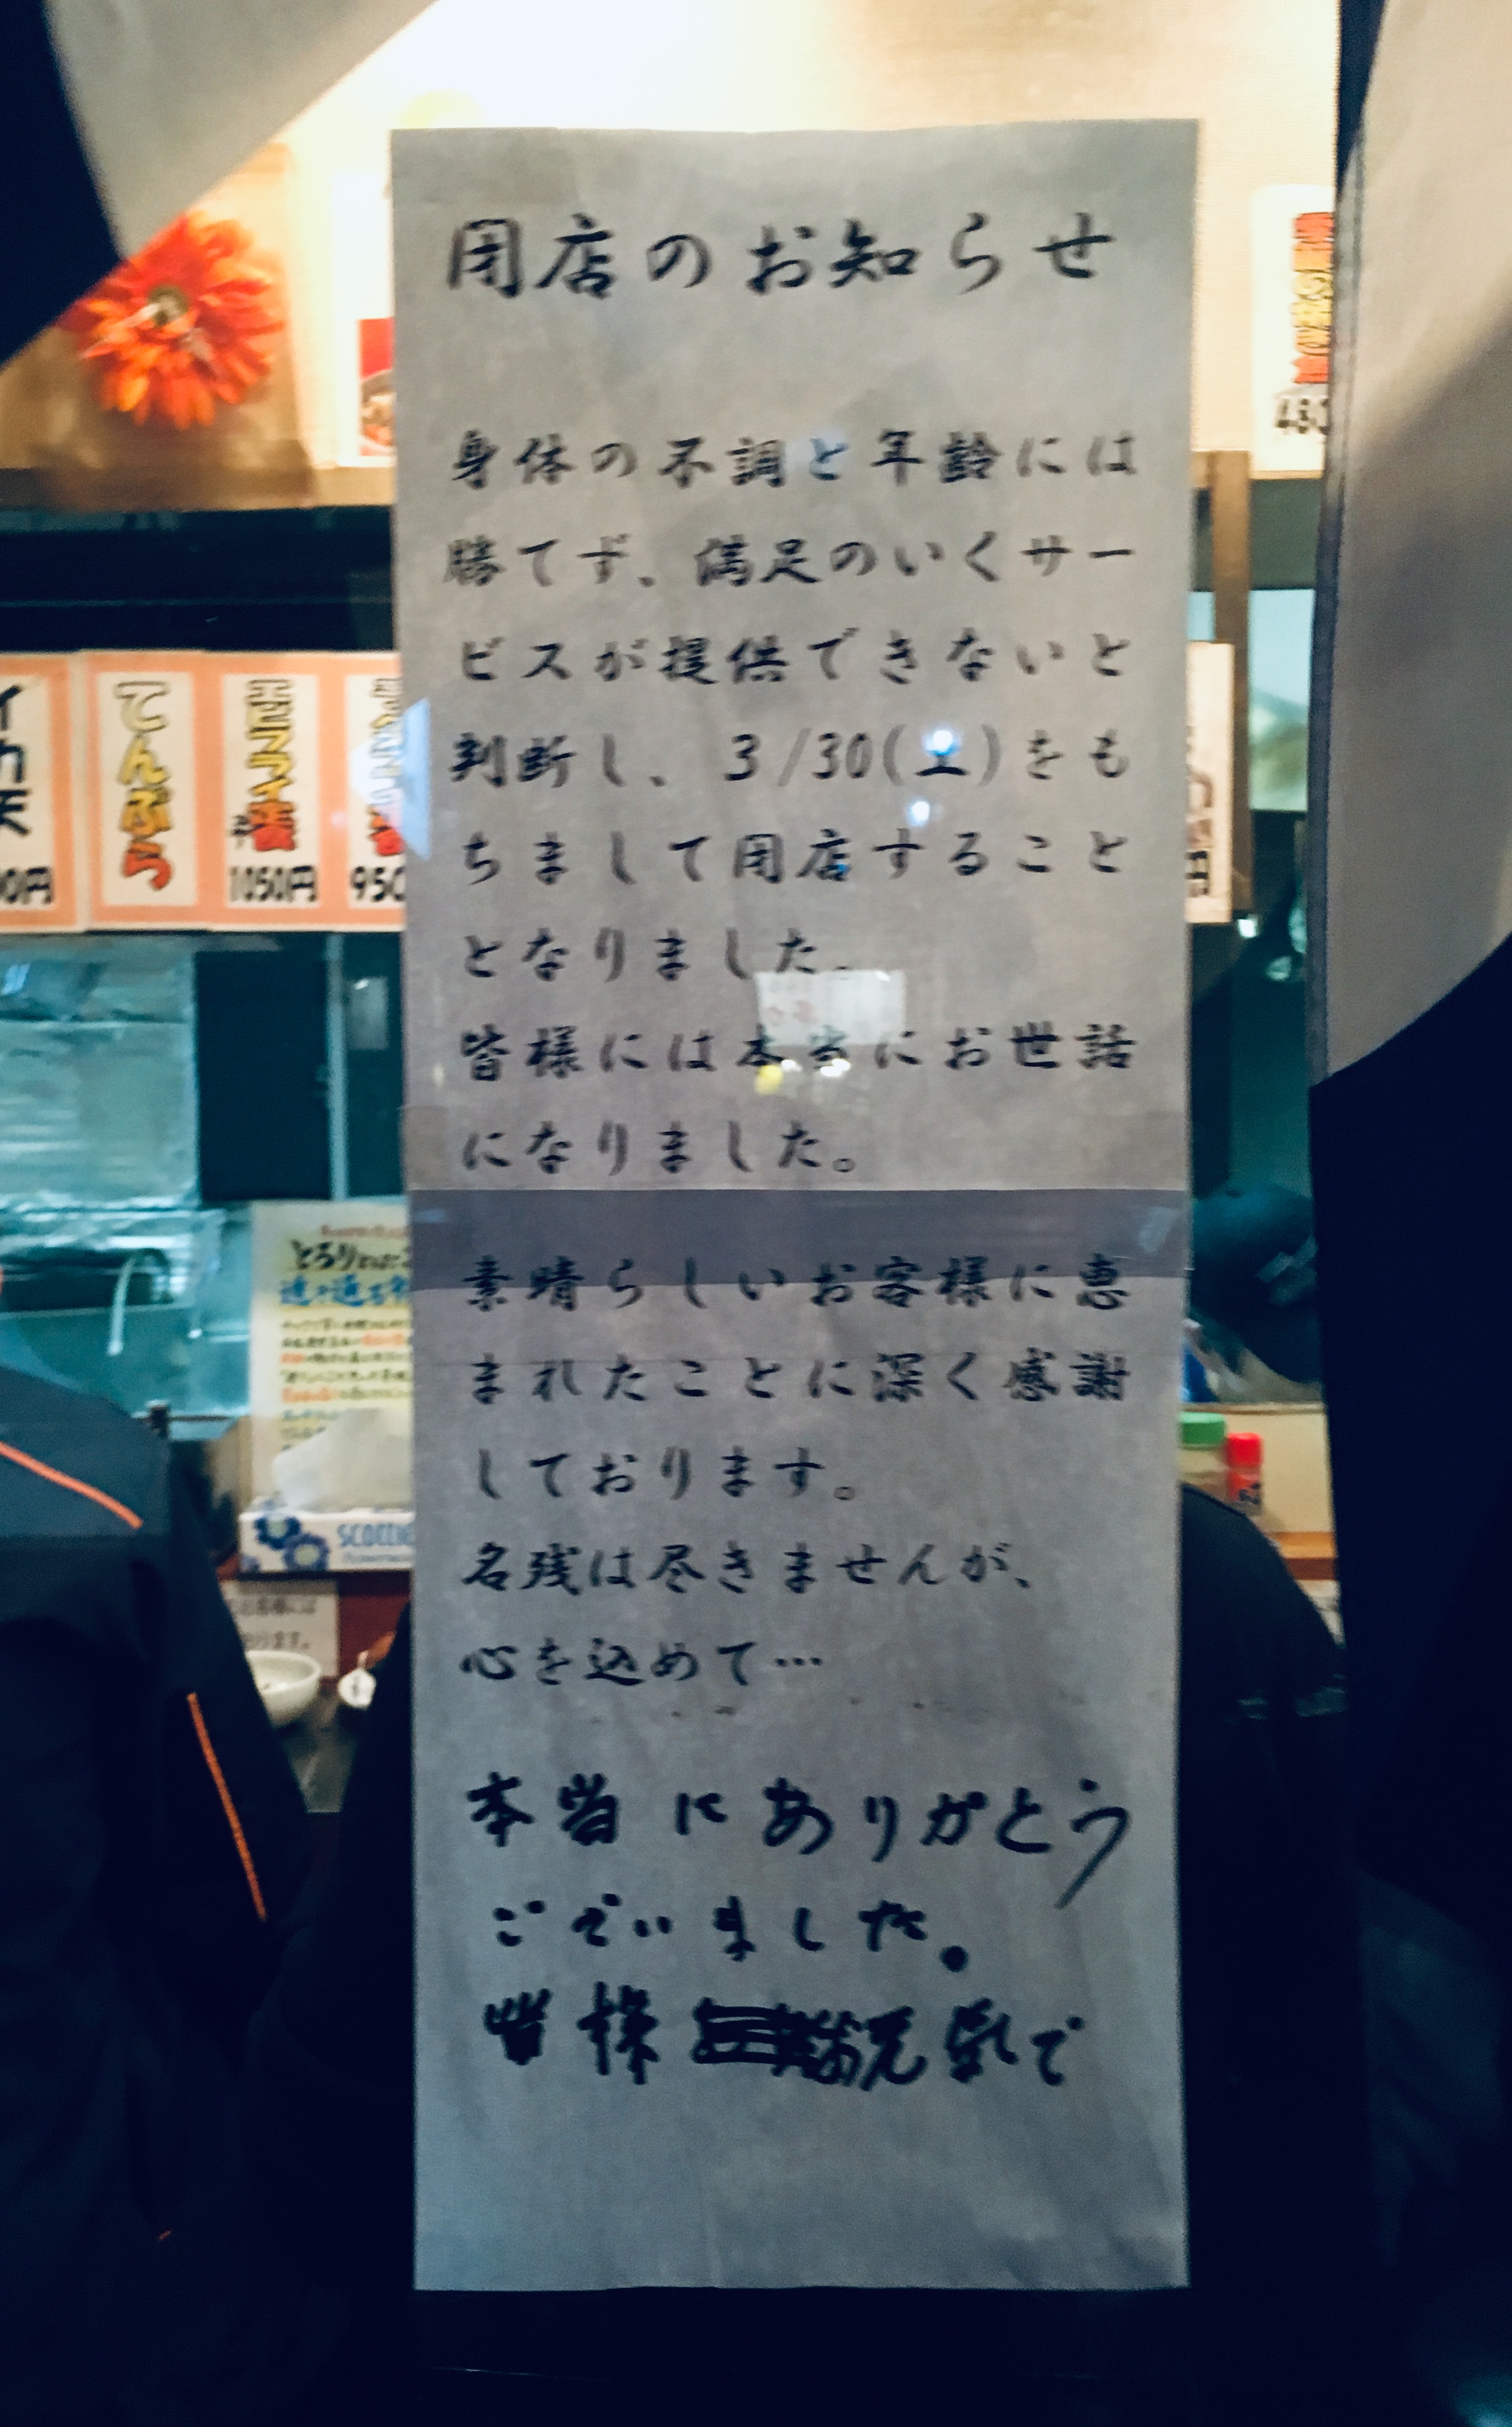 閉店のお知らせ
身体の不調と年齢には
勝てず、満足のいくサー
ビスが提供できないと
判断し、3/30(土)をも
ちまして閉店すること
となりました。
皆様には本当にお世話
になりました。
素晴らしいお客様に恵
まれたことに深く感謝
しております。
名残は尽きませんが、
心を込めて…
本当にありがとう
ございました。
皆様 お元気で
てんぷら
エビフライ
1050円
950
イカ天
00円
とろり
SCOTTIE